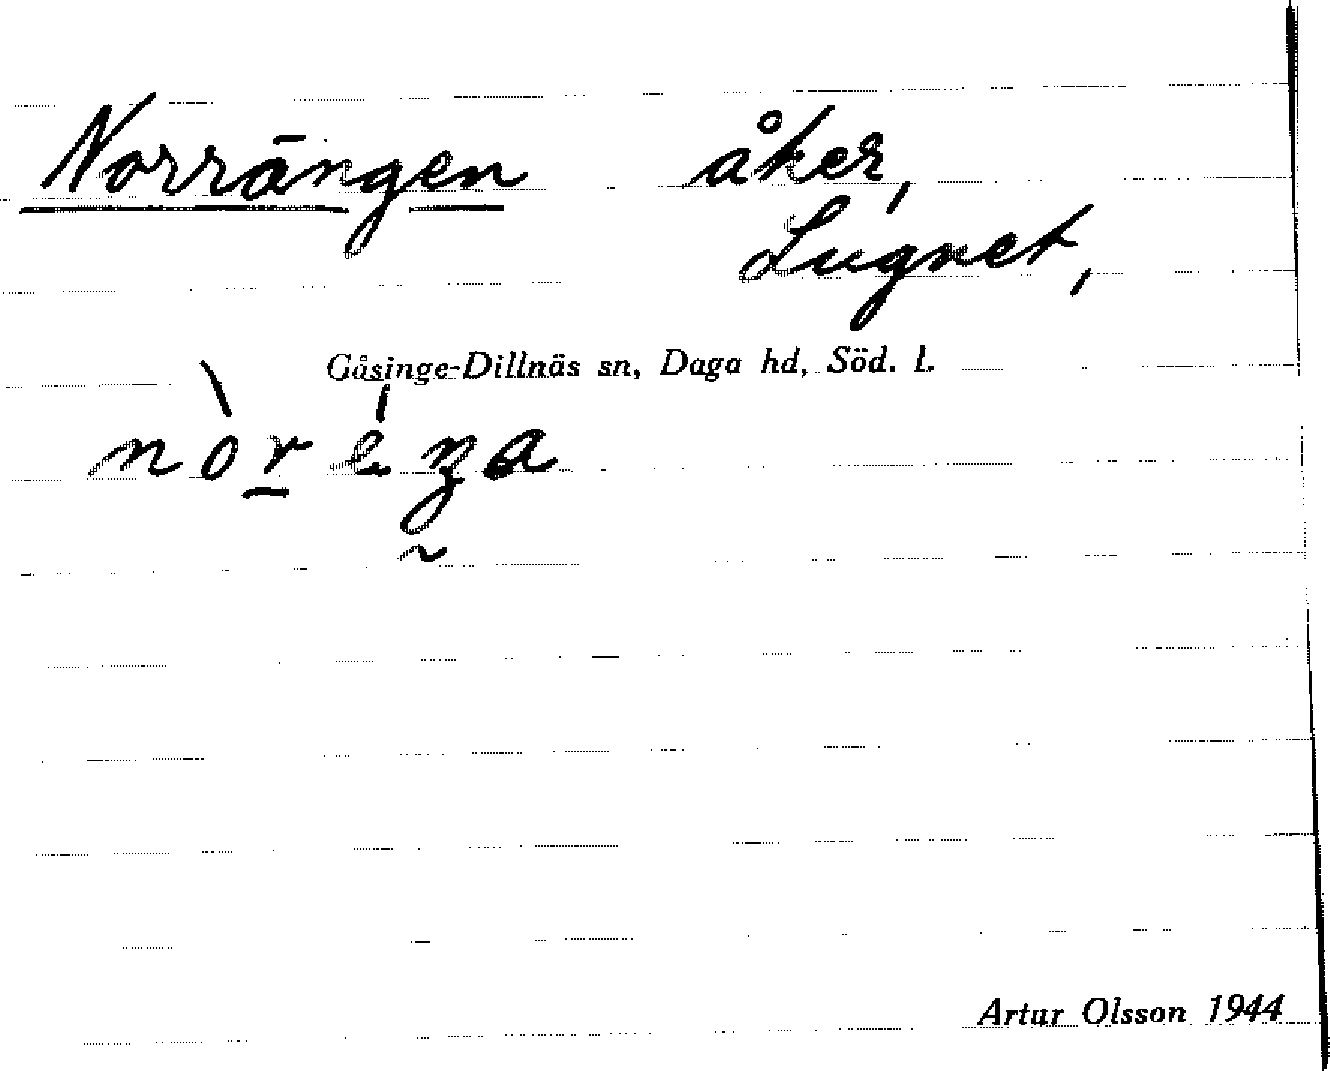 Norrängen åker,
Lugnet,
Gåsinge-Dillnäs sn, Daga hd, Söd. l.
Artur Olsson 1944